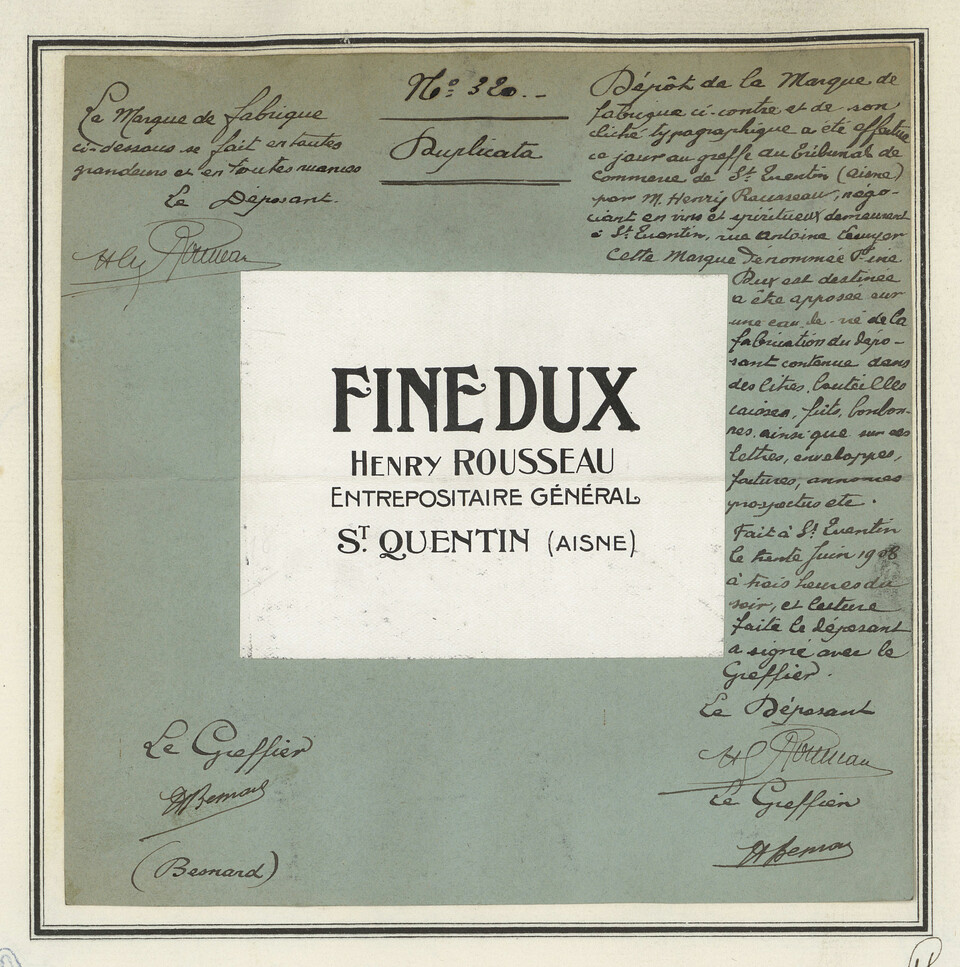 La Marque de fabrique
ci-dessous se fait en toutes
grandeurs et en toutes nuances
Le Déposant.
N° 320.-
Duplicata
Dépôt de la Marque de
fabrique ci-contre et de son
cliché typographique a été effectué
ce jour au greffe du Tribunal de
Commerce de St Quentin (Aisne)
par M. Henry Rousseau, négo-
ciant en vins et spiritueux demeurant
à St Quentin, rue Antoine Lécuyer
Cette Marque dénommée Fine
Dux est destinée
a être apposée sur
une eau de vie de la
fabrication du dépo-
sant contenue dans
des litres, bouteilles
caisses, fûts, bonbon-
nes, ainsi que sur ses
lettres, enveloppes,
factures, annonces
prospectus etc.
Fait à St Quentin
le trente Juin 1908
à trois heures du
soir, et lecture
faite le déposant
a signé avec le
Greffier.
Le Déposant
HY Rousseau
Le Greffier
H Besnard
FINE DUX
HENRY ROUSSEAU
ENTREPOSITAIRE GÉNÉRAL
ST QUENTIN (AISNE)
Le Greffier
H Besnard
(Besnard)